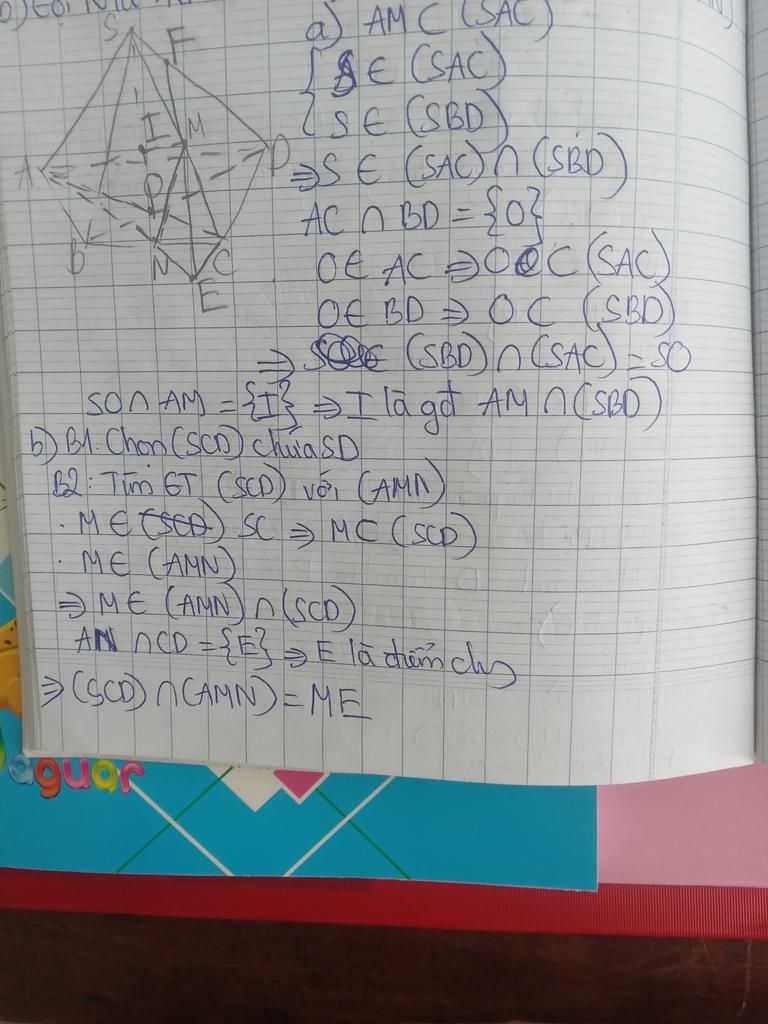 a) AM C (SAC)
S F
S ∈ (SAC)
S ∈ (SBD)
I M
A D
⇒ S ∈ (SAC) ∩ (SBD)
AC ∩ BD = {O}
B N C
O ∈ AC ⇒ O C (SAC)
E
O ∈ BD ⇒ O C (SBD)
⇒ (SBD) ∩ (SAC) = SO
SO ∩ AM = {I} ⇒ I là gđ AM ∩ (SBD)
b) B1: Chọn (SCD) chứa SD
B2: Tìm GT (SCD) với (AMN)
. M ∈ (SCD) SC ⇒ M C (SCD)
. M ∈ (AMN)
⇒ M ∈ (AMN) ∩ (SCD)
AN ∩ CD = {E} ⇒ E là điểm chg
⇒ (SCD) ∩ (AMN) = ME
aguar